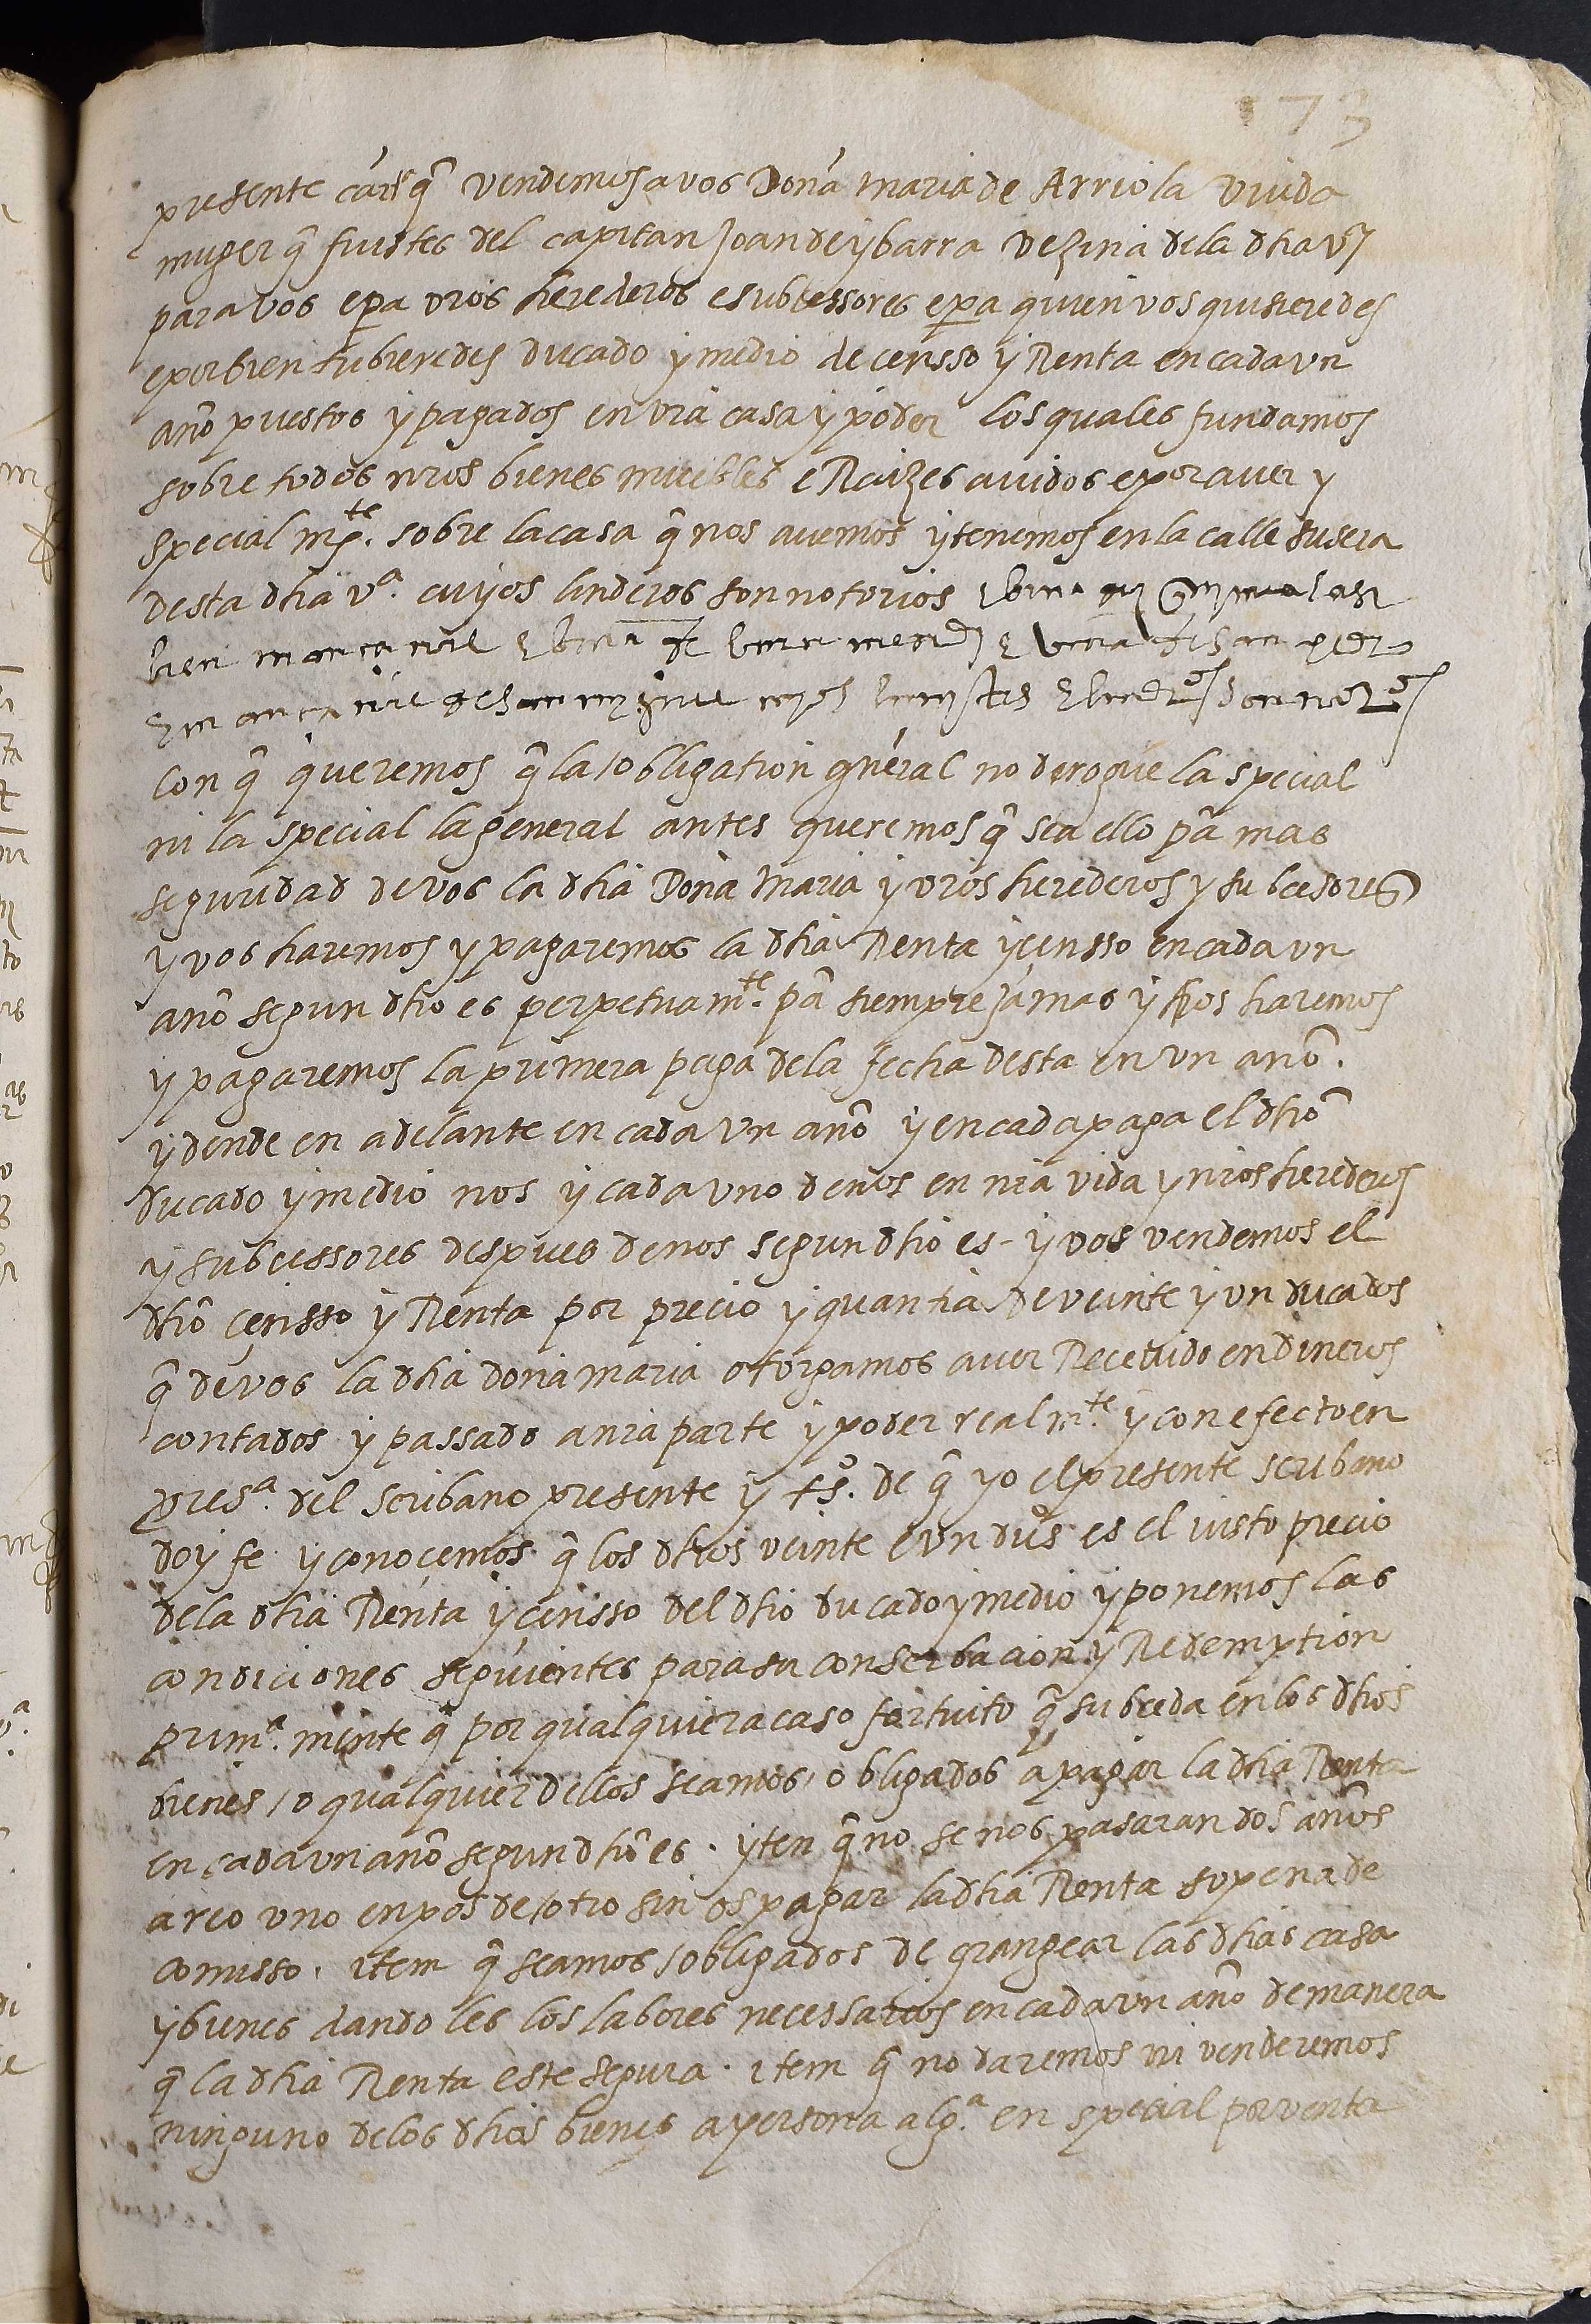 173
presente carta q̃ vendemos a vos Doña maria de Arriola viuda
muger q̃ fuistes del capitan Joan de ybarra vezina dela dha vª
para vos epa vros herederos e subcessores epa quien vos quisieredes
e por bien tubieredes ducado y medio de censso y Renta en cada vn
año puestos y pagados en vra casa y poder los quales fundamos
sobre todos nros bienes muebles e Raizes auidos e por auer y
special mte. sobre la casa q̃ nos auemos y tenemos en la calle susera
desta dha vª. cuyos linderos son notorios
bien mançanal de san pedro
e mançanal de san miguel cuyos limites e linderos son notos
con q̃ queremos q̃ la obligation gñeral no derogue la special
ni la special la general antes queremos q̃ sea ello pã mas
seguridad de vos la dha Doña Maria y vros herederos y subcesores
y vos haremos y pagaremos la dha Renta y censso en cada vn
año segun dho es perpetua mte. pã siempre jamas y hos haremos
y pagaremos la primera paga dela fecha desta en vn año.
y dende en adelante en cada vn año y en cada paga el dho
ducado y medio nos y cada vno de nos en nra vida y nros herederos
y subcessores despues de nos segun dho es - y vos vendemos el
dho censso y Renta por precio y quantia de veinte y vn ducados
q̃ de vos la dha doña maria otorgamos auer Receuido en dineros
contados y passado a nra parte y poder real mte. y con efecto en
presª. del scribano presente y tsº. de q̃ yo el presente scribano
doy fe y conocemos q̃ los dhos veinte e vn duºs es el iusto precio
dela dha Renta y censso del dho ducado y medio y ponemos las
condiciones seguientes para su conserbacion y Redemption
primª. mente q̃ por qualquiera caso fortuito q̃ subceda en los dhos
bienes / o qualquier dellos seamos / obligados a pagar la dha Renta
en cada vn año segun dho es. yten q̃ no se nos pasaran dos años
a reo vno en pos de / otro sin os pagar la dha Renta so pena de
comisso. item q̃ seamos / obligados de grangear las dhas casa
y bienes dandoles los labores necessarios en cada vn año de manera
q̃ la dha Renta este segura. item q̃ no daremos ni venderemos
ninguno delos dhos bienes a persona algª. en special por venta